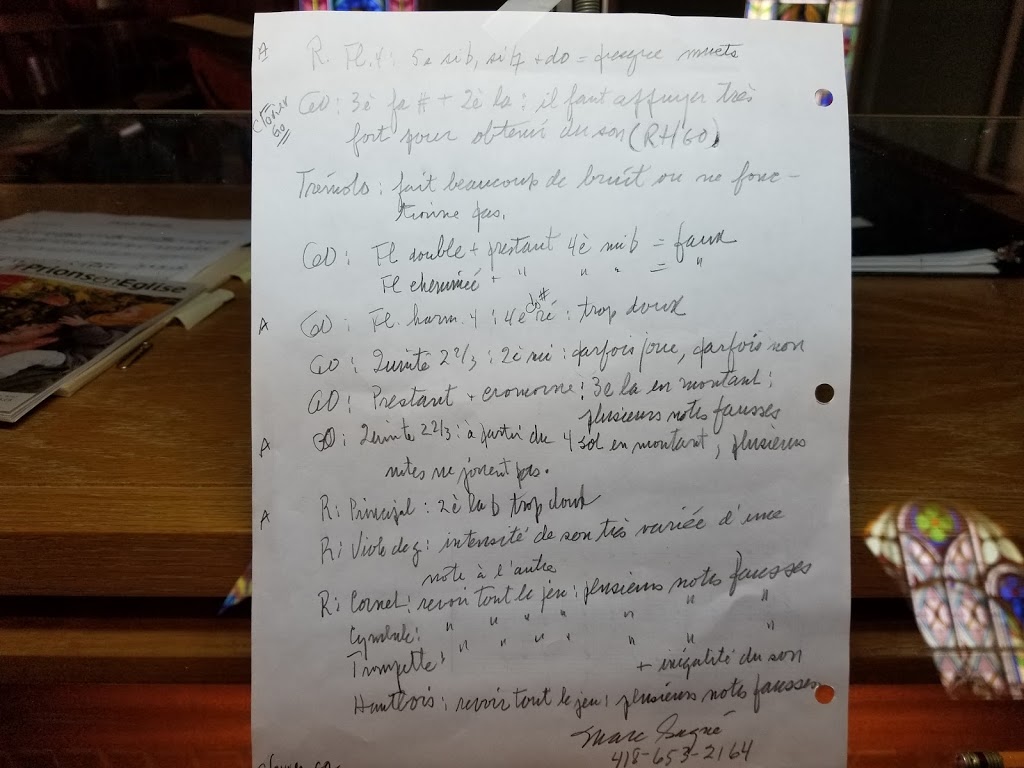 A R. Fl. 4 : 5e sib, si♮ + do = presque muets
Clavier GO
GO : 3è fa # + 2è la : il faut appuyer très
fort pour obtenir du son (RH/GO)
Trémolo : fait beaucoup de bruit ou ne fonc-
tionne pas.
GO : Fl double + prestant 4è mi b = faux
Fl cheminée + " " " = "
A GO : Fl. harm. 4 : 4è do# ré : trop doux
GO : Quinte 2 2/3 : 2è mi : parfois joue, parfois non
GO : Prestant + cromorne : 3e la en montant :
plusieurs notes fausses
A GO : Quinte 2 2/3 : à partir du 4 sol en montant, plusieurs
notes ne jouent pas.
A R : Principal : 2è la b trop doux
R : Viole de g : intensité de son très variée d'une
note à l'autre
R : Cornet : revoir tout le jeu : plusieurs notes fausses
Cymbale : " " " " " " "
Trompette : " " " " " " "
+ inégalité du son
Hautbois : revoir tout le jeu : plusieurs notes fausses
Marc
418-653-2164
Prions en Église